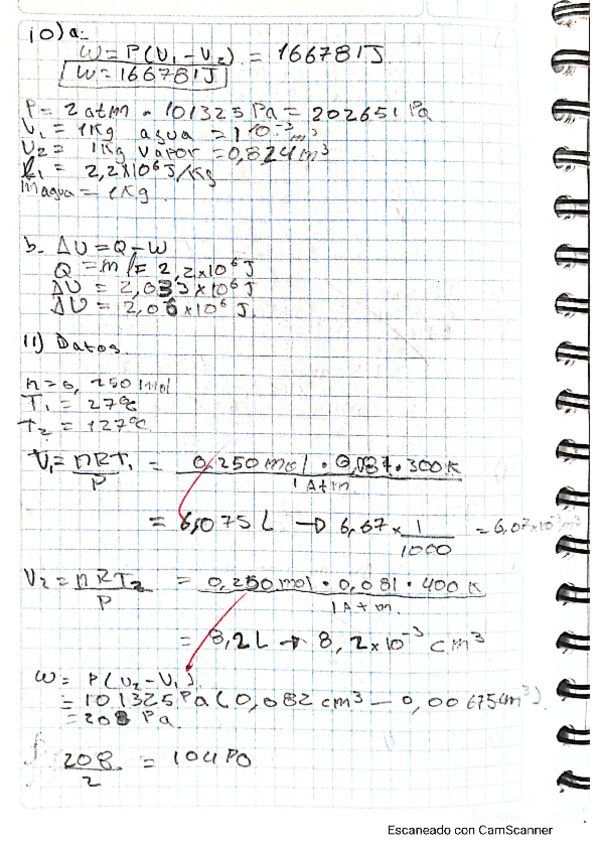 10) a-
W = P(V₁ - V₂) = 166781J
W = 166781J
P = 2 atm - 101325 Pa = 202651 Pa
V₁ = 1Kg agua = 1 10⁻³ m³
V₂ = 1Kg vapor = 0,824 m³
l₁ = 2,2x10⁶ J/Kg
magua = 1Kg
b- ΔU = Q - W
Q = ml = 2,2x10⁶ J
ΔU = 2,033x10⁶ J
ΔU = 2,06x10⁶ J.
11) Datos.
n = 0,250 mol
T₁ = 27°c
T₂ = 127°c
V₁ = nRT₁ / P = 0,250 mol • 0,081 • 300 K / 1 Atm
= 6,075 L → 6,67 x 1/1000 = 6,07x10⁻³
V₂ = nRT₂ / P = 0,250 mol • 0,081 • 400 K / 1 Atm.
= 8,2 L → 8,2x10⁻³ cm³
W = P(V₂ - V₁)
= 101325 Pa (0,082 cm³ - 0,00675 cm³).
= 208 Pa
208 / 2 = 104 Pa
Escaneado con CamScanner